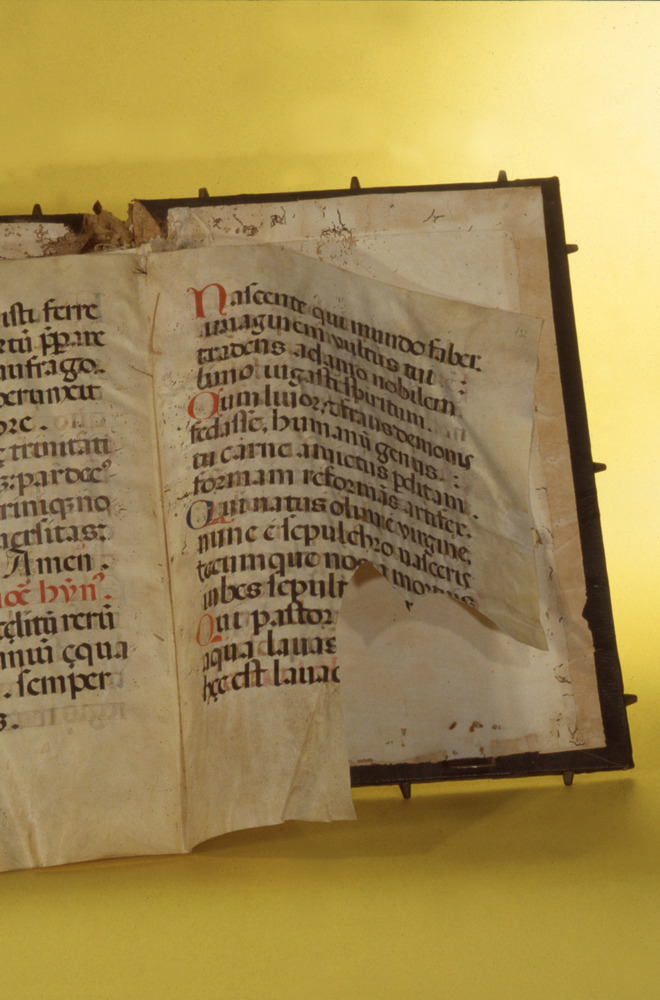 isti ferre
rtū p̄pare
aufrago.
perunxit
ore.
ę trinitati
s: par decꝰ
riniqꝫ no
uersitas:
Amen.
hȳn⁹.
çelitū rerū
ęqua
. semper
s.
Nascente qui mundo faber.
imaginem vultus tui :
tradens adamo nobilem
limo iugasti spiritum.
Qum liuor, & fraus demonis
fedassē, humanū genus.
tu carne amictus pditam
formam reformās artifex.
Qui natus olim è virgine,
nunc è sepulchro nasceris
tecumque nos a mortuis
iubes sepult
Qui pastor
aqua lauas
hęc est lauac